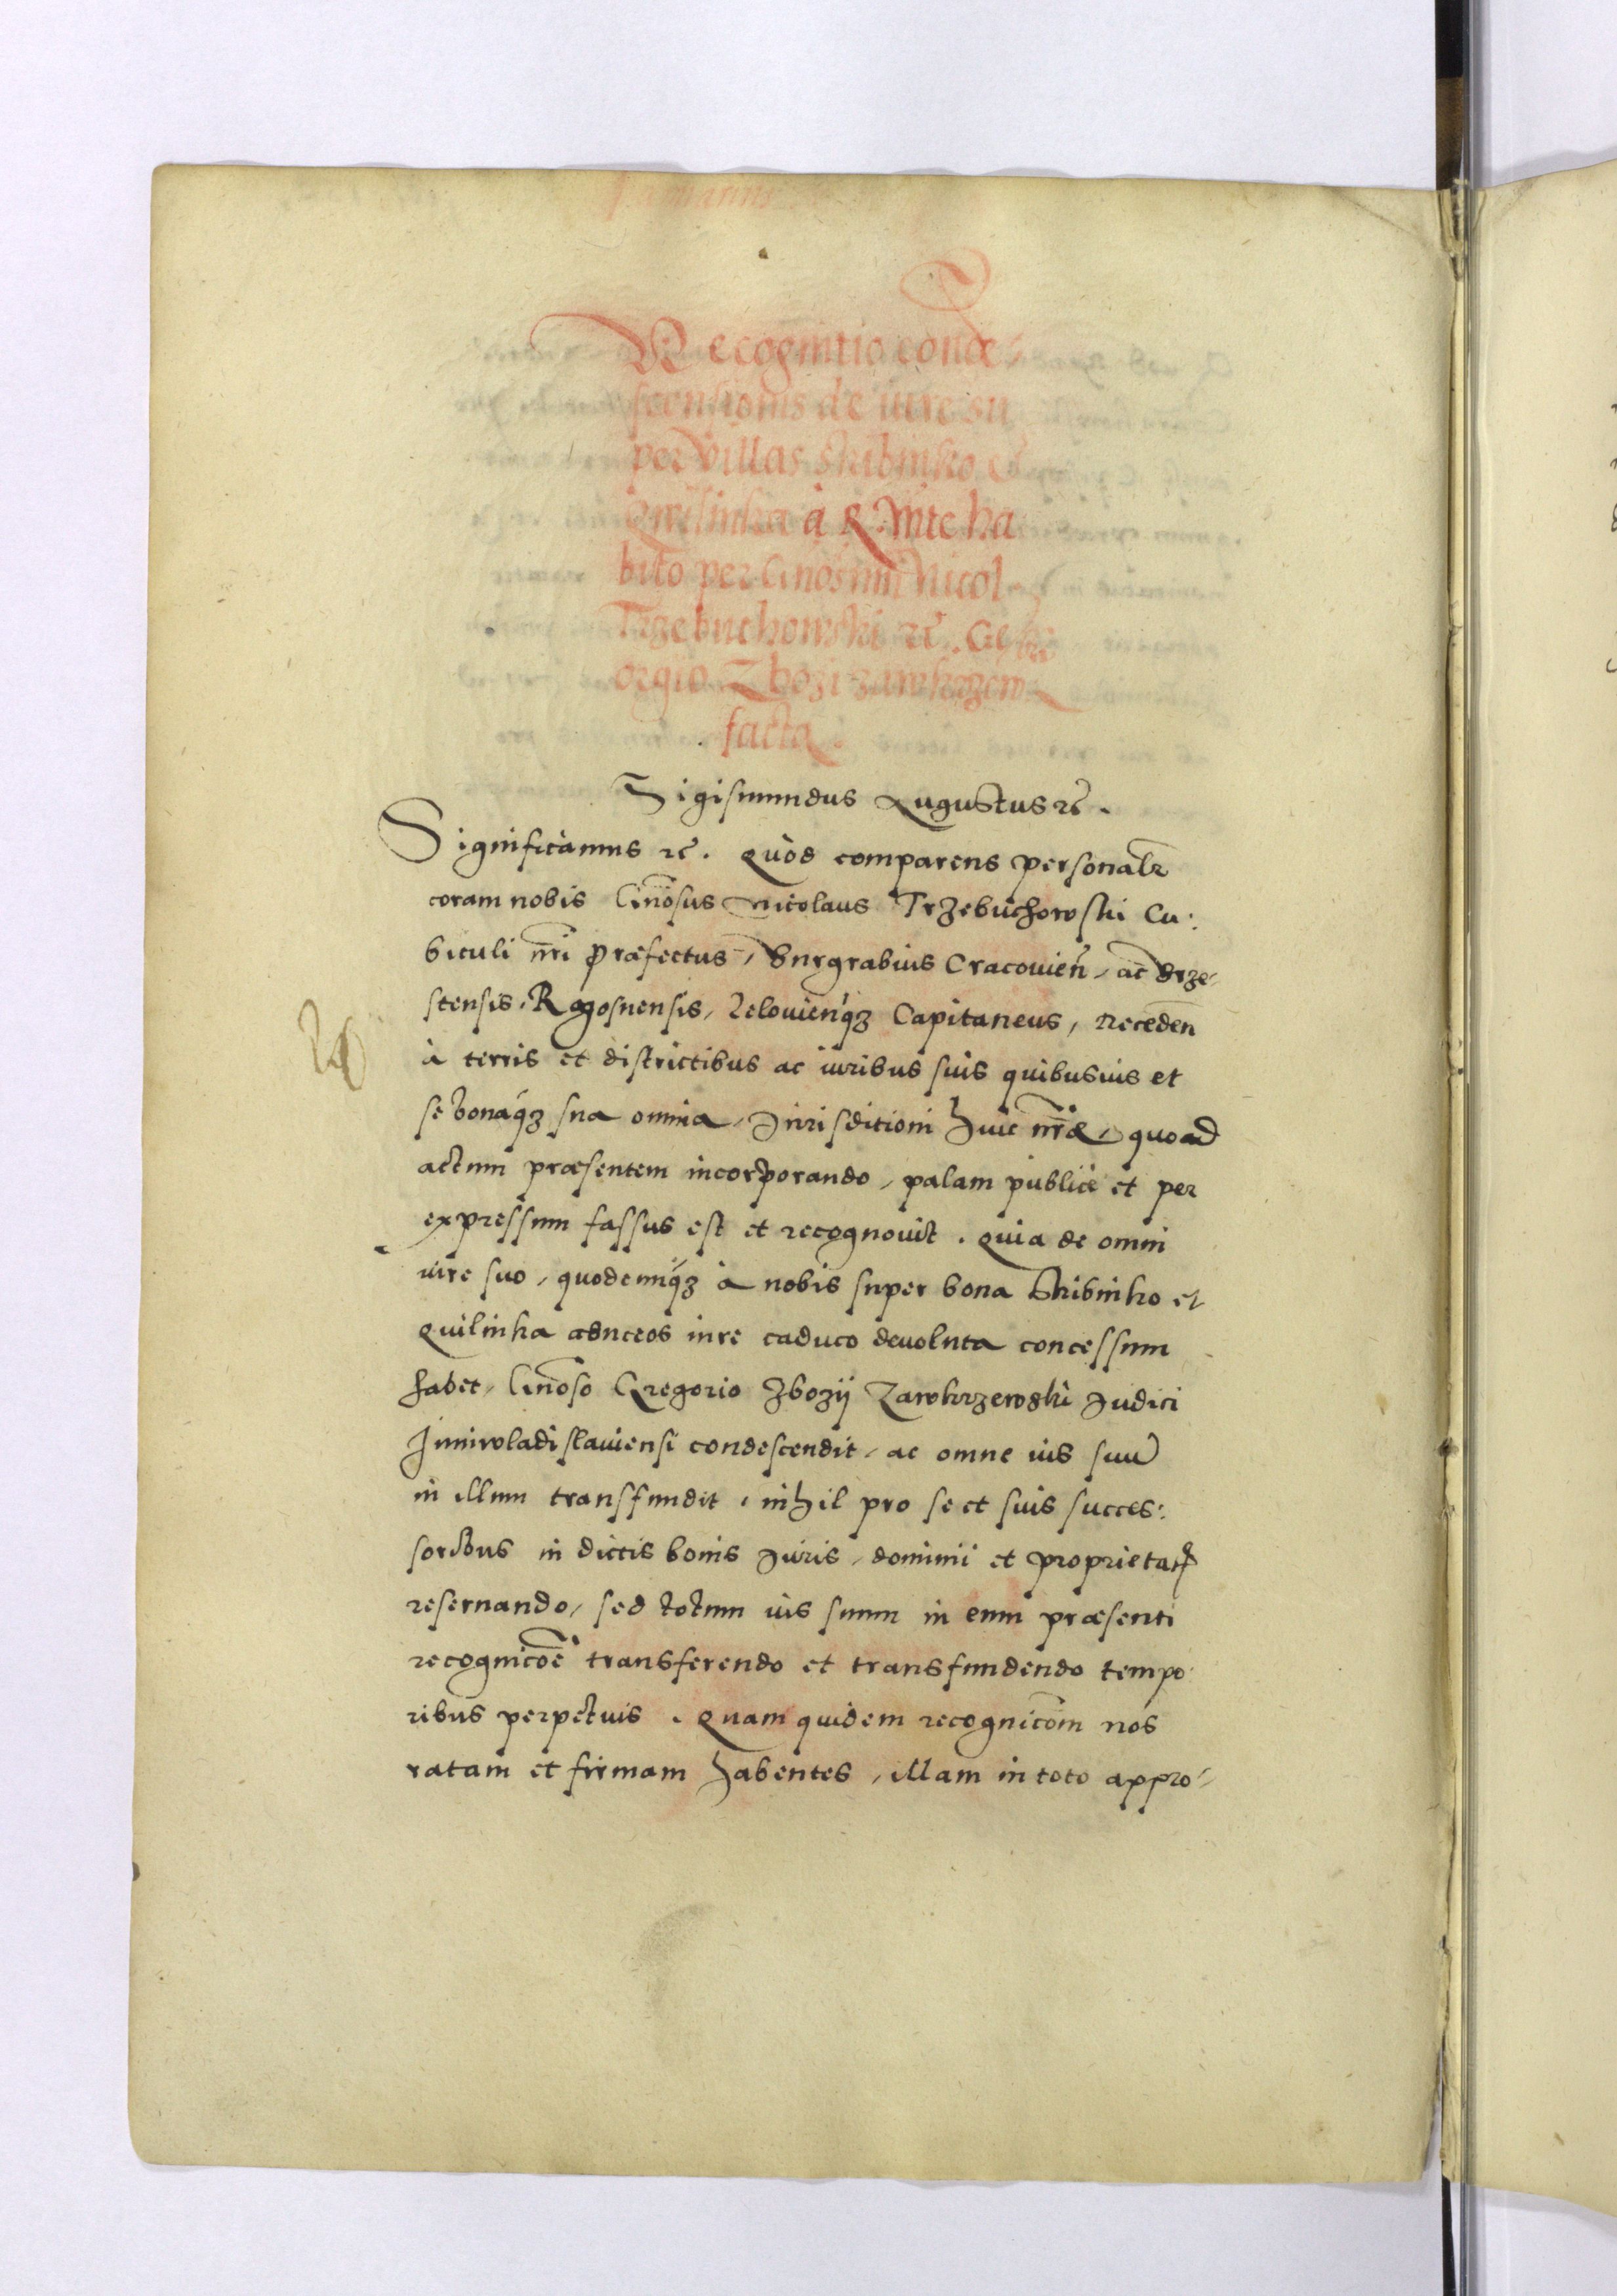 Recognitio conde-
scensionis de iure su
per villas Skibinko et
Qwilinka à R. Mte ha
bito per Gnosum Nicol.
Trzebuchowski etc. Gre
orgio Zbozi zawkrzew.
facta.
Sigismundus Augustus etc.
Significamus etc. Quòd comparens personalr
coram nobis Gnosus Nicolaus Trzebuchowski Cu:
biculi nri Præfectus, Burgrabius Cracovien, ac Brze-
stensis, Rogosnensis, Lelovienqz Capitaneus, Receden
à terris et districtibus ac iuribus suis quibusvis et
se bonaqz sua omnia, Jurisditioni huic nræ, quoad
actum præsentem incorporando, palam publicè et per
expressum fassus est et recognovit. Quia de omni
iure suo, quodcunqz à nobis super bona Skibinko et
Quilinka ad nos iure caduco devoluta concessum
habet, Gnoso Gregorio Zbozij Zawkrzewski Judici
Juniwladislaviensi condescendit, ac omne ius suu
in illum transfundit, nihil pro se et suis succes:
soribus in dictis bonis Juris, dominii et proprietatis
reservando, sed totum ius suum in eum præsenti
recognicoe transferendo et transfundendo tempo
ribus perpetuis. Quam quidem recognicom nos
ratam et firmam habentes, illam in toto appro-